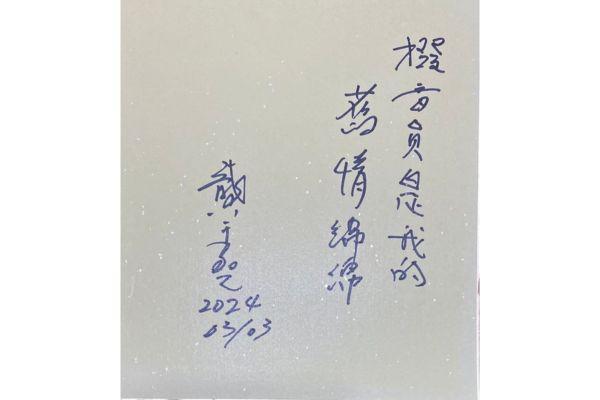 音員是我的
舊情綿綿
2024
03/03